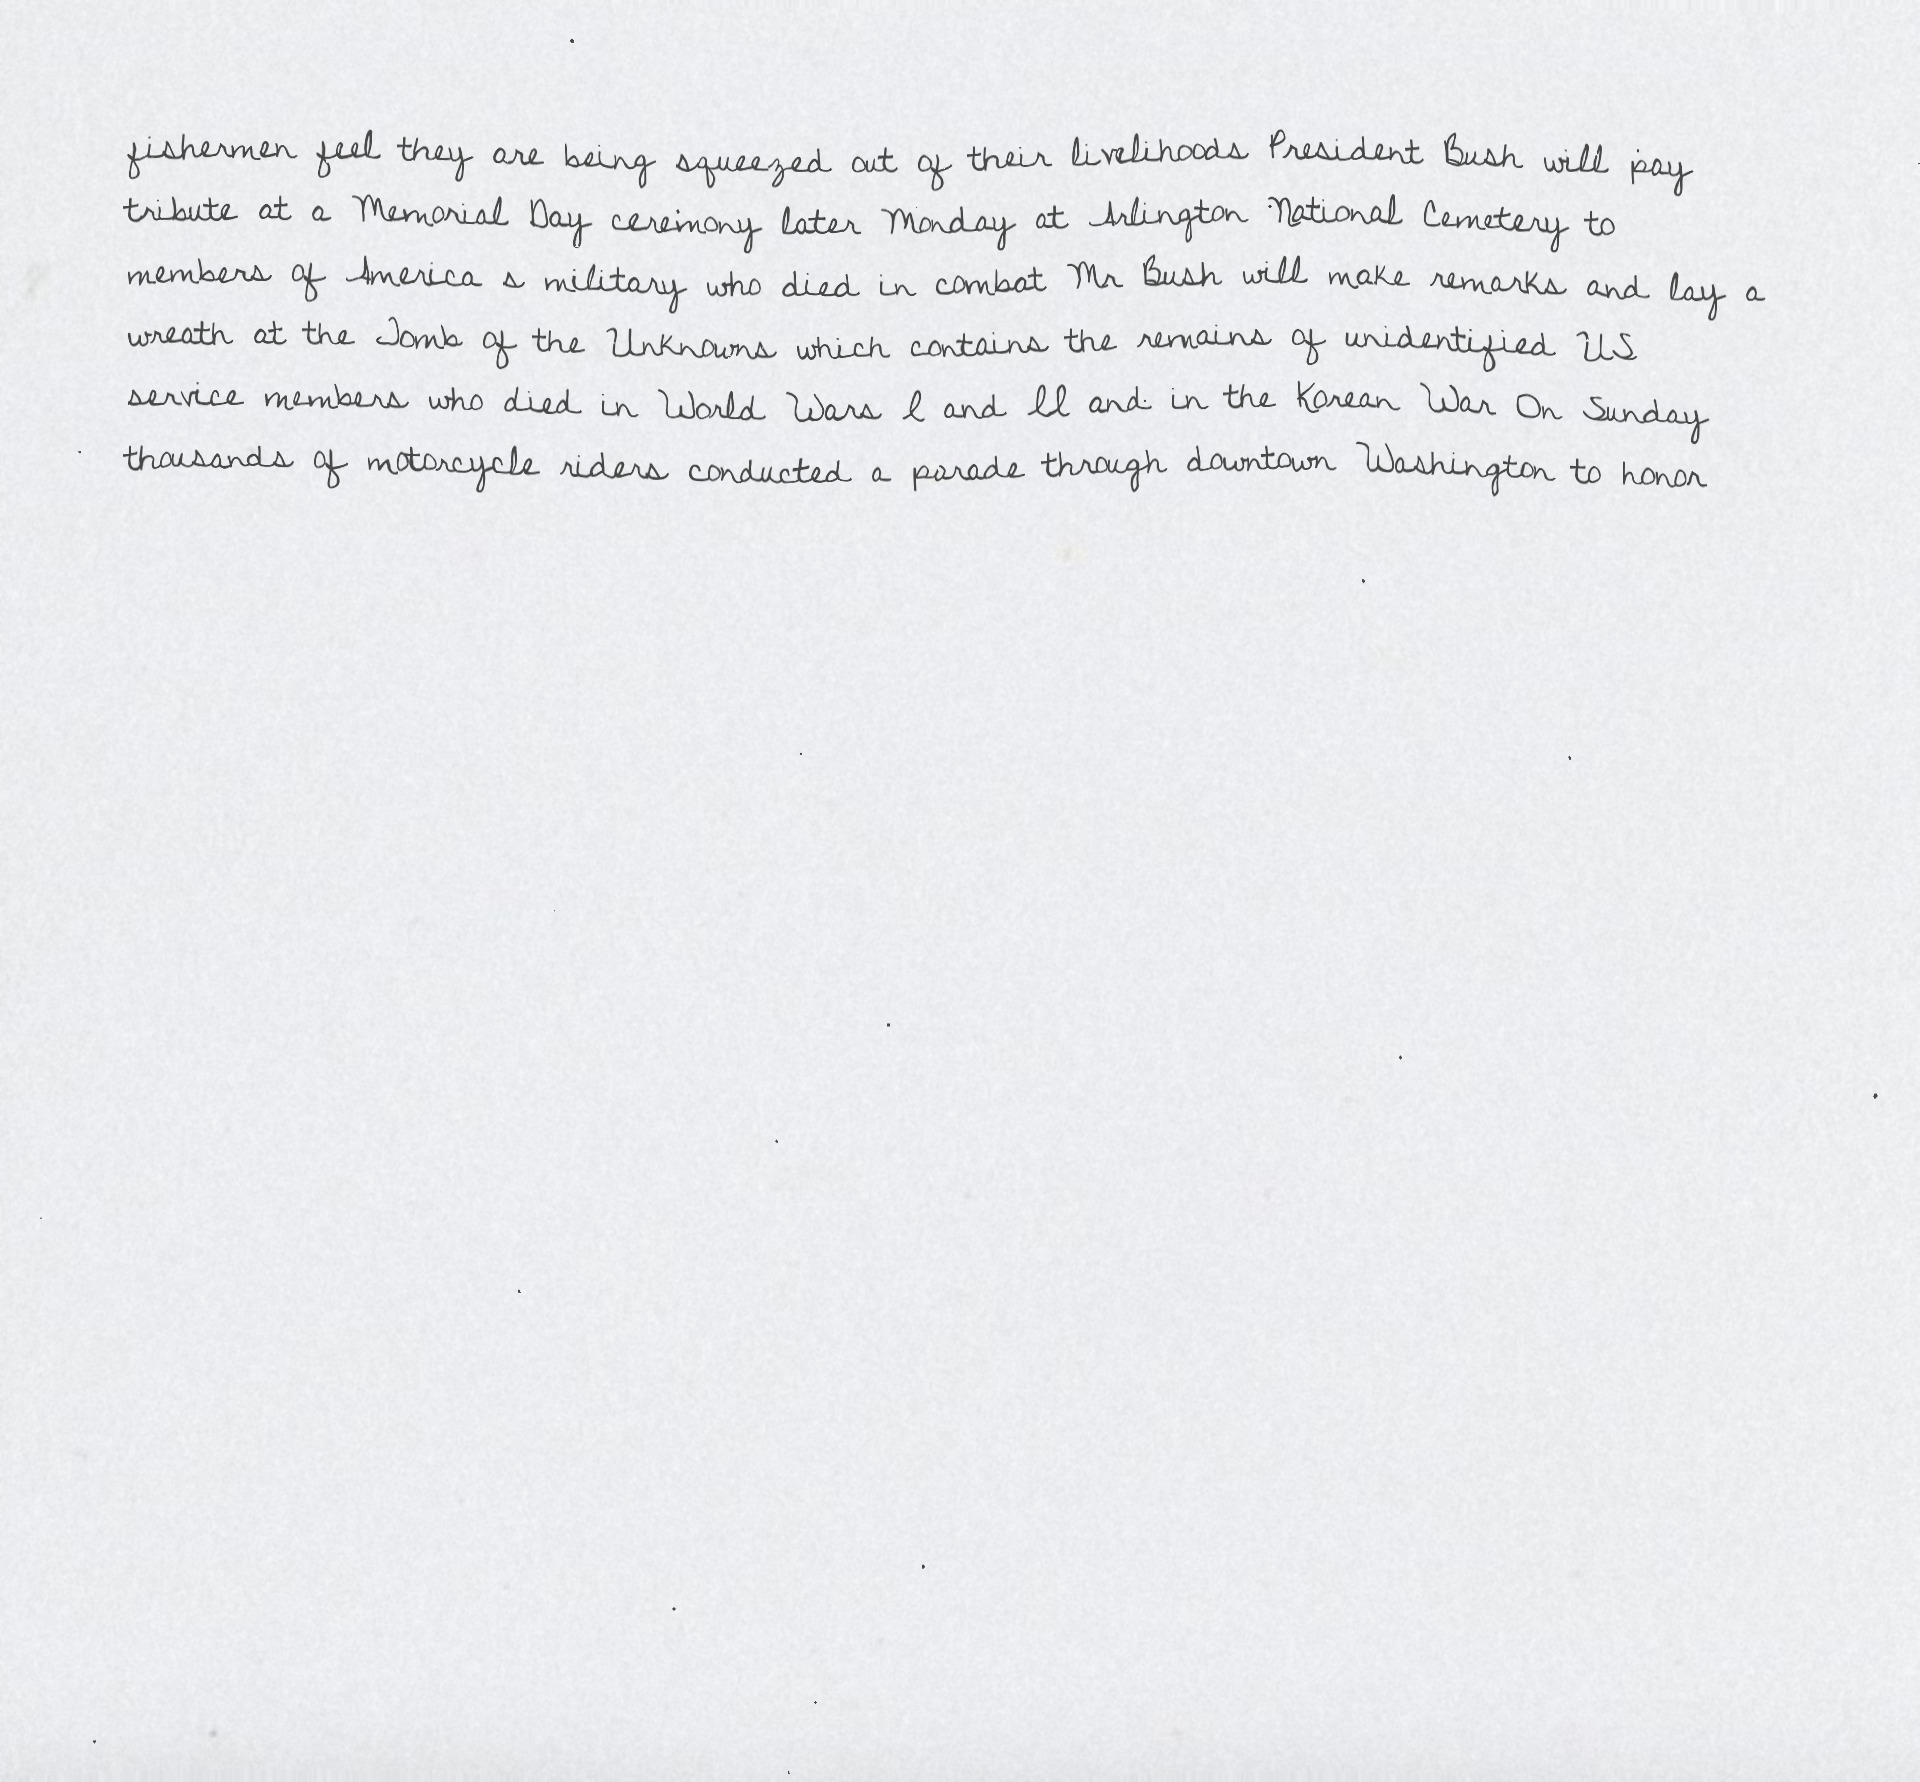 fishermen feel they are being squeezed out of their livelihoods President Bush will pay
tribute at a Memorial Day ceremony later Monday at Arlington National Cemetery to
members of America s military who died in combat Mr Bush will make remarks and lay a
wreath at the Tomb of the Unknowns which contains the remains of unidentified US
service members who died in World Wars I and II and in the Korean War On Sunday
thousands of motorcycle riders conducted a parade through downtown Washington to honor